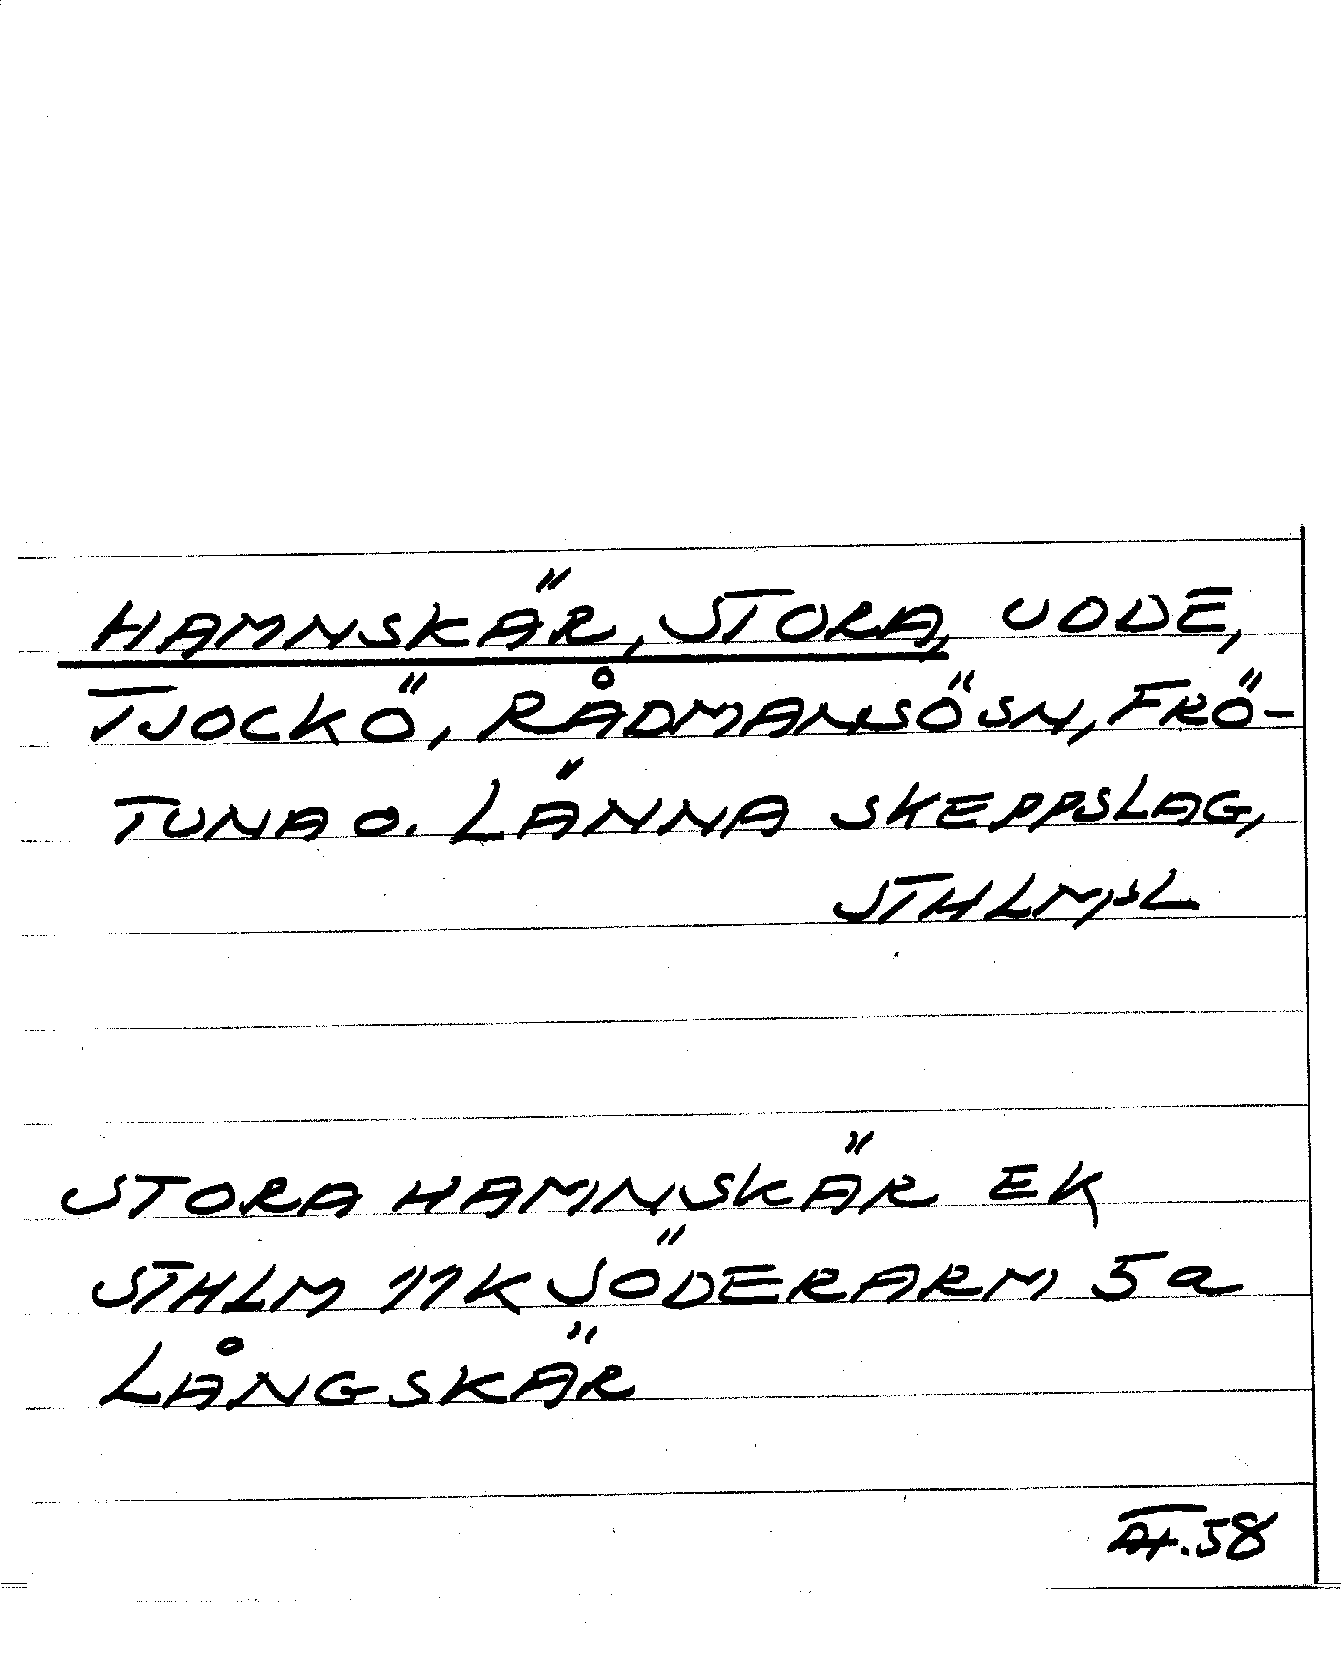 HAMNSKÄR, STORA, UDDE,
TJOCKÖ, RÅDMANSÖ SN, FRÖ-
TUNA O. LÄNNA SKEPPSLAG,
STHLMSL
STORA HAMNSKÄR EK
STHLM 11K SÖDERARM 5a
LÅNGSKÄR
58